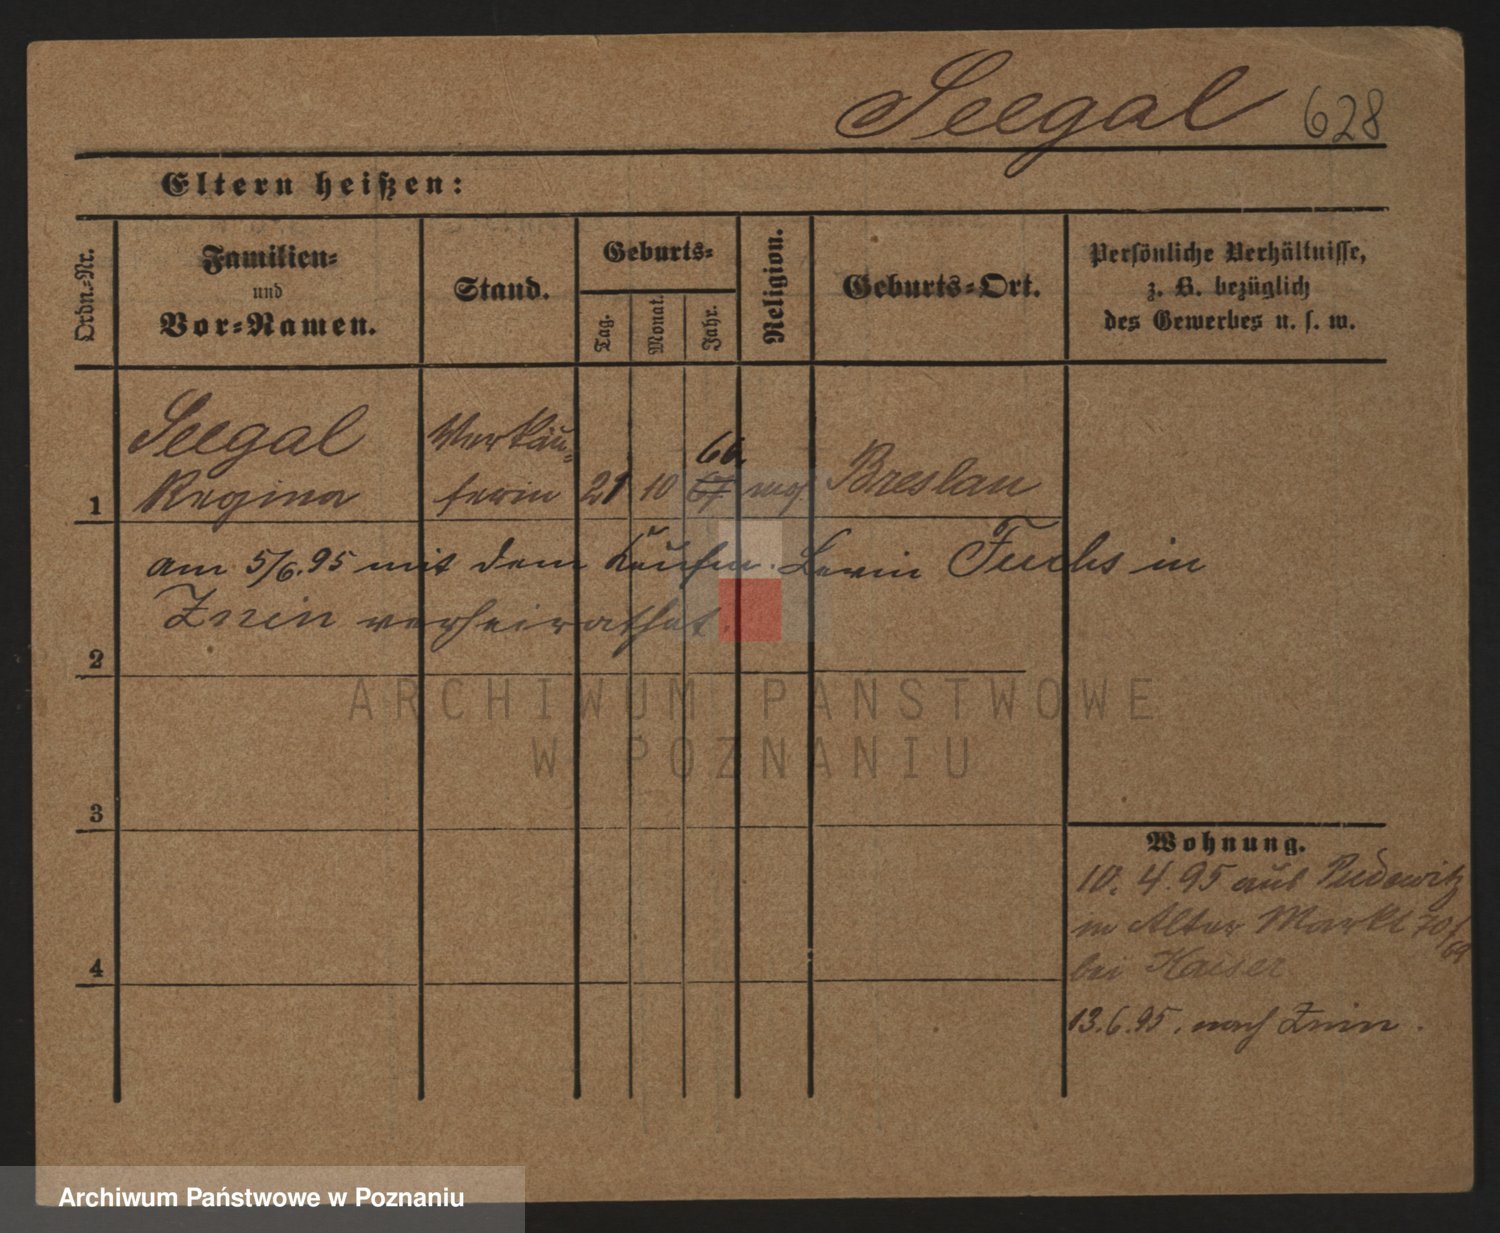 Seegal 628
Eltern heißen:
Ordn.-Nr.
Familien-
und
Vor-Namen.
Stand.
Geburts-
Tag.
Monat.
Jahr.
Religion.
Geburts-Ort.
Persönliche Verhältnisse,
z. B. bezüglich
des Gewerbes u. s. w.
Seegal Verkäu-
66.
1 Regina ferin 21 10 67 mos Breslau
am 5/6.95 mit dem Kaufm. Levin Fuchs in
Znin verheirathet.
2
ARCHIWUM PAŃSTWOWE
W POZNANIU
3
Wohnung.
10. 4. 95 aus Pudewitz
in Alter Markt 70/
bei Kaiser
4
13.6.95. nach Znin.
Archiwum Państwowe w Poznaniu